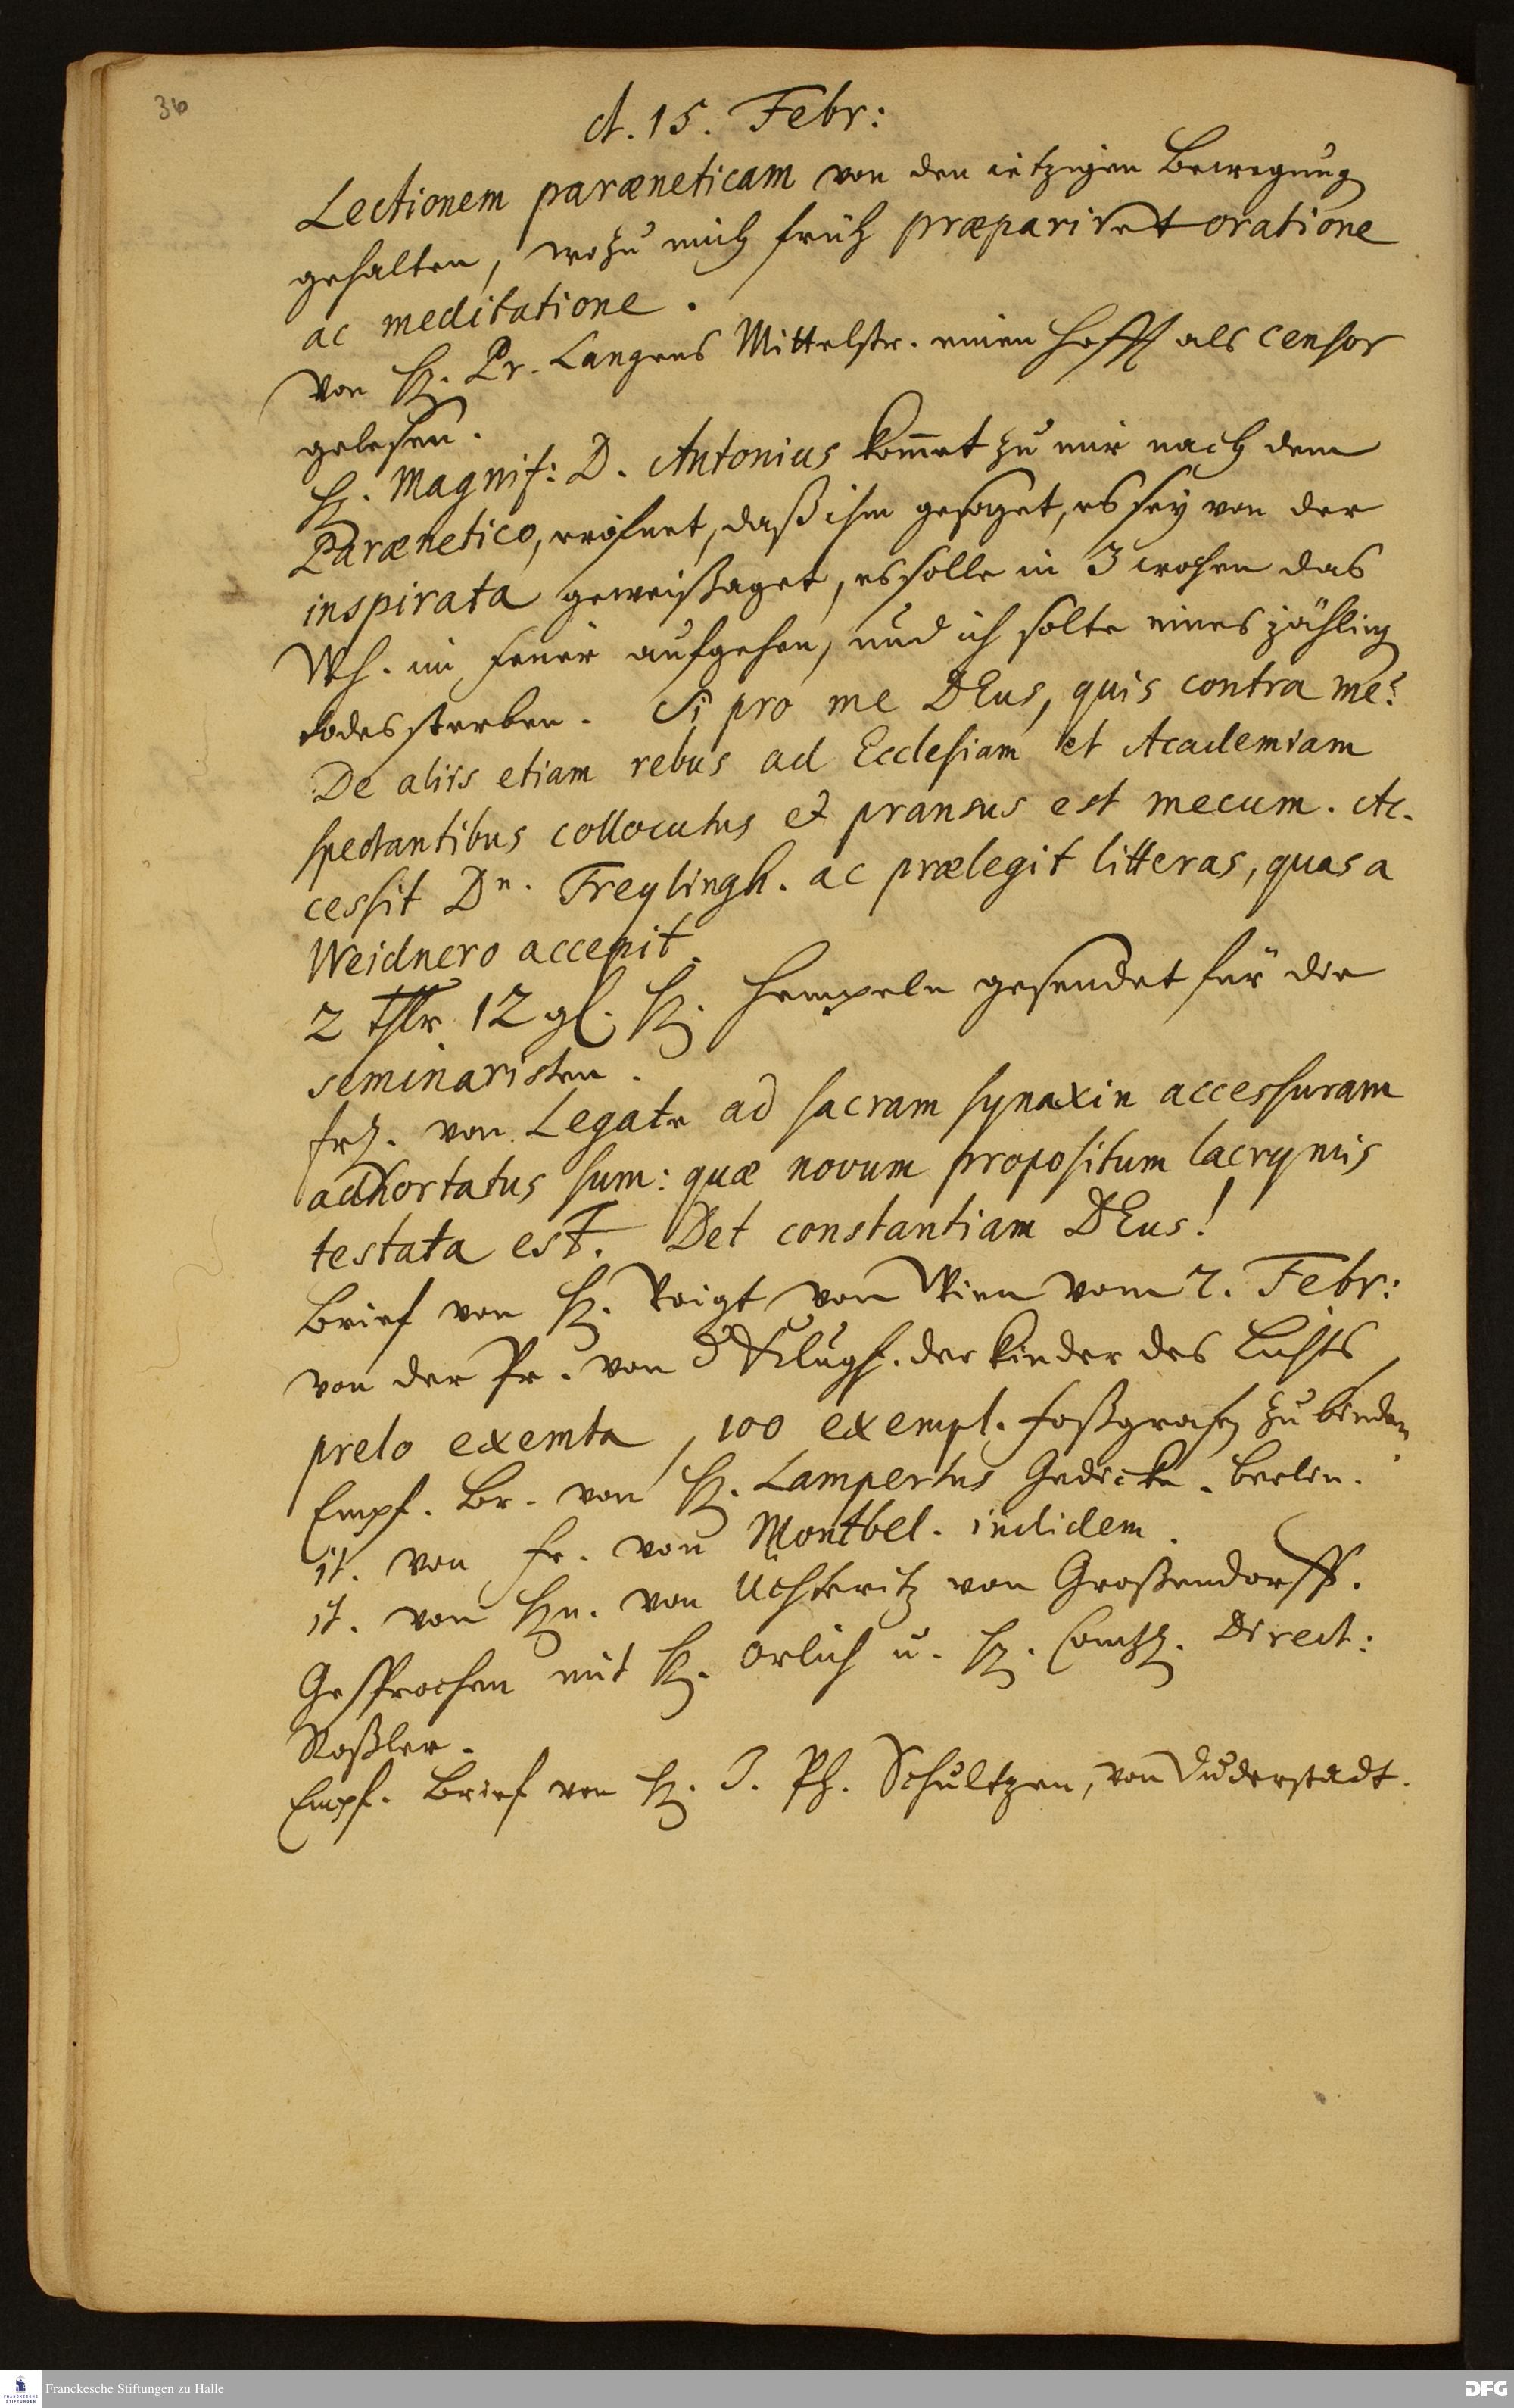 36
d. 15. Febr:
Lectionem paræneticam von den ietzigen Bewegung
gehalten, wozu mich früh præpariret oratione
ac meditatione.
Von H. Pr. Langens Mittelstr. einen hefft als Censor
gelesen.
H. Magnif: D. Antonius kom̅et zu mir nach dem
Parænetico, eröfnet, daß ihm gesaget, es sey von der
inspirata geweißaget, es solle in 3 wochen das
Wh. im feuer aufgehen, und ich solte eines jähling
todes sterben. Si pro me DEus, quis contra me?
De aliis etiam rebus ad Ecclesiam et Academiam
spectantibus collocutus et pransus est mecum. Ac-
cessit Dn. Freylingh. ac prælegit litteras, quas a
Weidnero accepit.
2 Thlr. 12 gl. H. Hempeln gesendet für die
seminaristen.
Frl. von Legate ad sacram synaxin accessuram
adhortatus sum: quæ novum propositum lacrymis
testata est. Det constantiam DEus!
Brief von H. Voigt von Wien vom 2. Febr:
von der Pr. von d Klugh. der Kinder des Lichts,
prelo exemta, 100 exempl. zu binden
Empf. Br. von H. Lampertus Gedicke. Berlin.
it. von Fr. von Montbel. indidem.
it. von Hn. von Üchteritz von Großendorff.
Gesprochen mit H. Orlich u. H. Direct:
Roßler.
Empf. Brief von H. J. Ph. Schultzen, von Duderstadt.
Franckesche Stiftungen zu Halle
FRANCKESCHE STIFTUNGEN
DFG